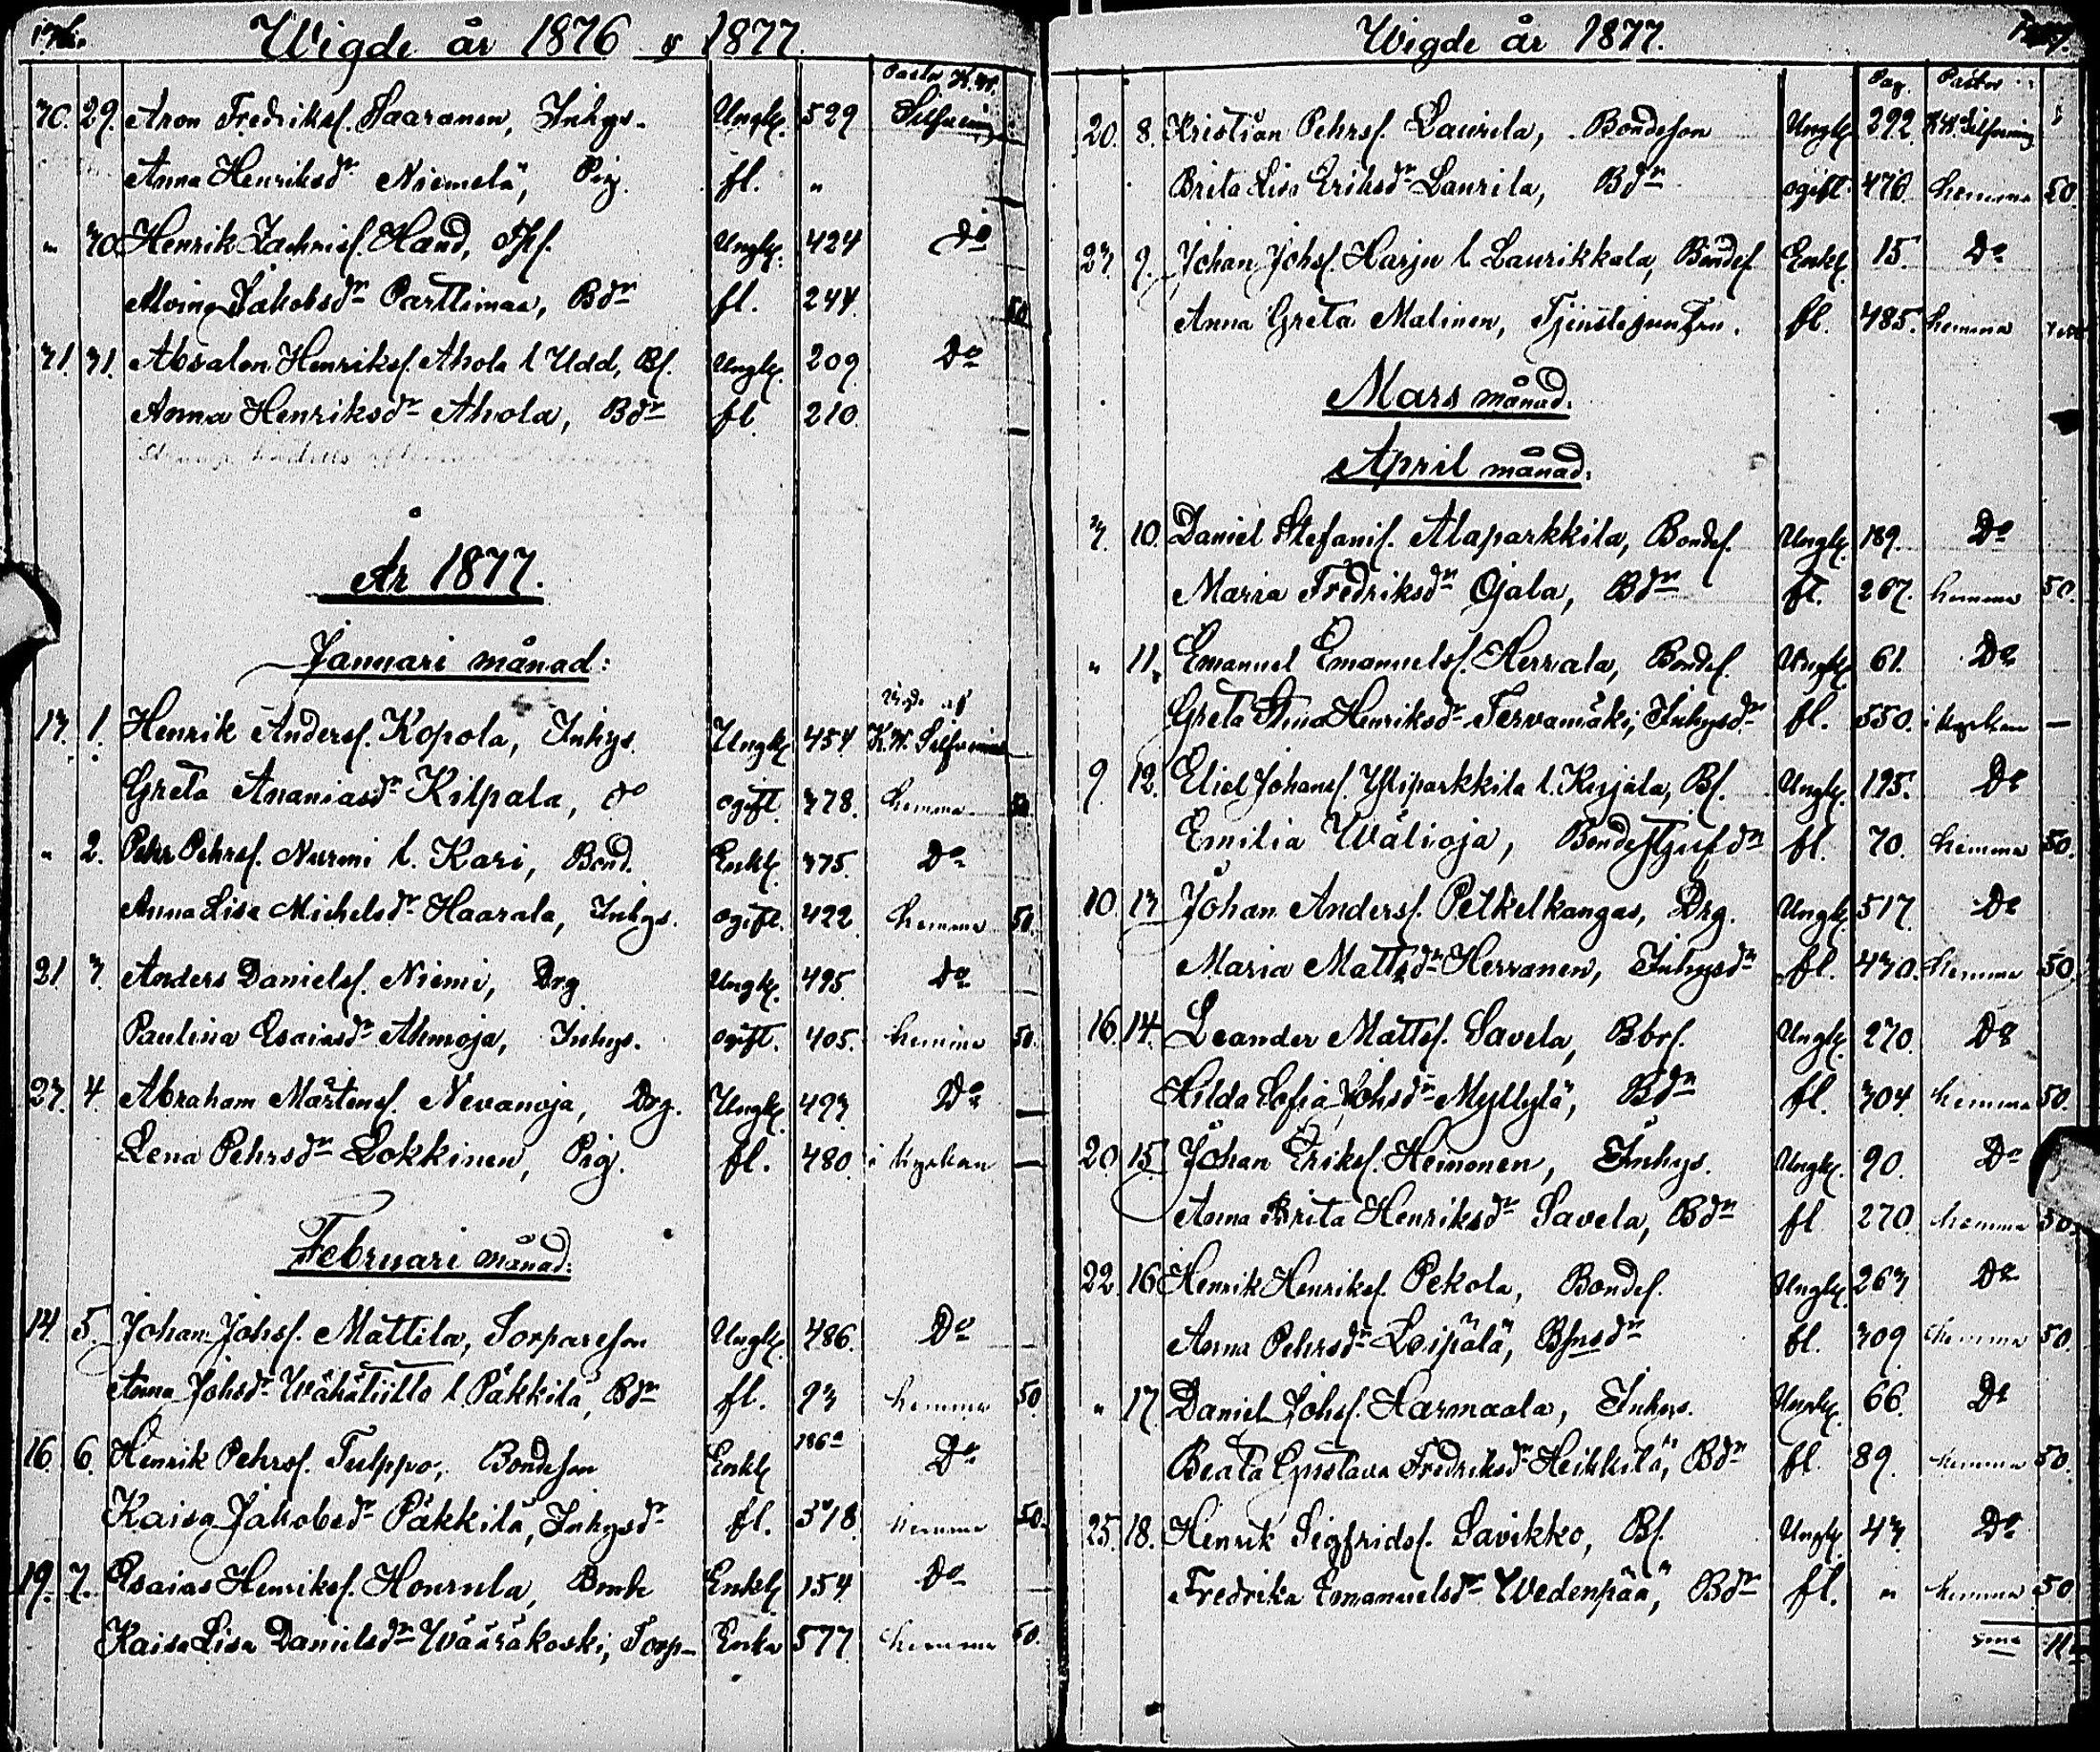 Wigde år 1876 o 1877.
Pastor K.W.
30. 29. Aron Fredrikss. Saaranen, Inhys. Ungk. 529 Silfvening
Anna Henriksdr Niemelä, Pig. fl. "
" 30 Henrik Zachriss. Hand, Ungk. 424 Do
Jakobsdr Parttimaa, Bdr fl. 244 50
31. 31. Absalon Henrikss. Ahola l. Udd, Bs. Ungk. 209 Do
Anna Henriksdr Ahola, Bdr fl. 210. —
År 1877.
Januari månad:
Vigde af
13. 1. Henrik Anderss. Kopola, Inhys. Ungk. 454 K.W. Silfvenius
Greta Ananiasdr Kilpala, do ogift. 378. hemma 50
" 2. Pehr Pehrss. Nurmi l. Kari, Bond. Enkl. 375. Do
Anna Lisa Michelsdr Haarala, Inhys. ogift. 422. hemma 50.
21 3. Anders Danielss. Niemi, Drg Ungk. 495. Do
Paulina Esaiasdr Ahmoja, Inhys. ogift. 405. hemma 50.
23. 4. Abraham Mårtenss. Nevanoja, Drg. Ungk. 493 Do —
Lena Pehrsdr Lokkinen, Pig. fl. 480 i kyrkan —
Februari månad:
14. 5. Johan Johss. Mattila, Torpareson Ungk. 486. Do
Anna Johsdr Wähätiitto l. Päkkilä, Bdr fl. 93 hemma 50.
16. 6. Henrik Pehrss. Tulppo, Bondeson Enkl. 186a Do
Kaisa Jakobsdr Päkkilä, Inhysdr fl. 518. hemma 50.
19. 7. Esaias Henrikss. Hourula, Bonde Enkl. 154 Do
Kaisa Lisa Danielsdr Wääräkoski, Torp- Enka 577 hemma 50.
Wigde år 1877.
Pag. Pastor
20. 8. Kristian Pehrss. Laurila, Bondeson Ungk. 292. K.W. Silfvening
Brita Lisa Eriksdr Laurila, Bdr ogift. 476 hemma 50.
23. 9. Johan Johss. Harju l. Laurikkala, Bondes. Enkl. 15. Do
Anna Greta Malinen, Tjenstejungfru. fl. 485. hemma
Mars månad.
April månad:
3. 10. Daniel Stefanis. Alaparkkila, Bondes. Ungk. 189. Do
Maria Fredriksdr Ojala, Bdr fl. 267. hemma 50.
" 11. Emanuel Emanuelss. Herrala, Bondes. Ungk. 61. Do
Greta Stina Henriksdr Tervamäki, Inhysdr fl. 550. i kyrkan —
9. 12. Eliel Johans. Yliparkkila l. Kujala, Bs. Ungk. 195. Do
Emilia Wälioja, Bondestjufdr fl. 70. hemma 50.
10. 13 Johan Anderss. Petkelkangas, Drg. Ungk. 517. Do
Maria Mattsdr Herranen, Inhysdr fl. 430. hemma 50
16. 14. Leander Mattss. Savela, Bbrs. Ungk. 270. Do
Hilda Sofia Johsdr Myllylä, Bdr fl. 304. hemma 50.
20. 15 Johan Erikss. Heinonen, Inhys. Ungk. 90. Do
Anna Brita Henriksdr Savela, Bdr fl. 270. hemma 50.
22. 16 Henrik Henrikss. Pekola, Bondes. Ungk. 263 Do
Anna Pehrsdr Leipälä, Bhnsdr fl. 309 hemma 50.
" 17. Daniel Johss. Harmaala, Inhys. Ungk. 66. Do
Beata Gustava Fredriksdr Heikkilä, Bdr fl. 89. hemma 50.
25. 18. Henrik Sigfridss. Savikko, Bs. Ungk. 43 Do
Fredrika Emanuelsdr Wedenpää, Bdr fl. " hemma 50.